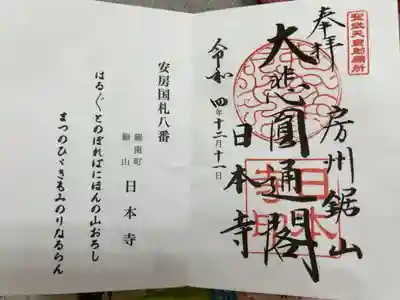 聖武天皇勅願所
奉拝
房州鋸山
大悲圓通閣
日本寺
令和四年十二月十一日
日本寺印
安房国札八番
鋸南町
鋸山
日本寺
はる〴〵とのぼればにほんの山おろし
まつのひゞきもみのりなるらん